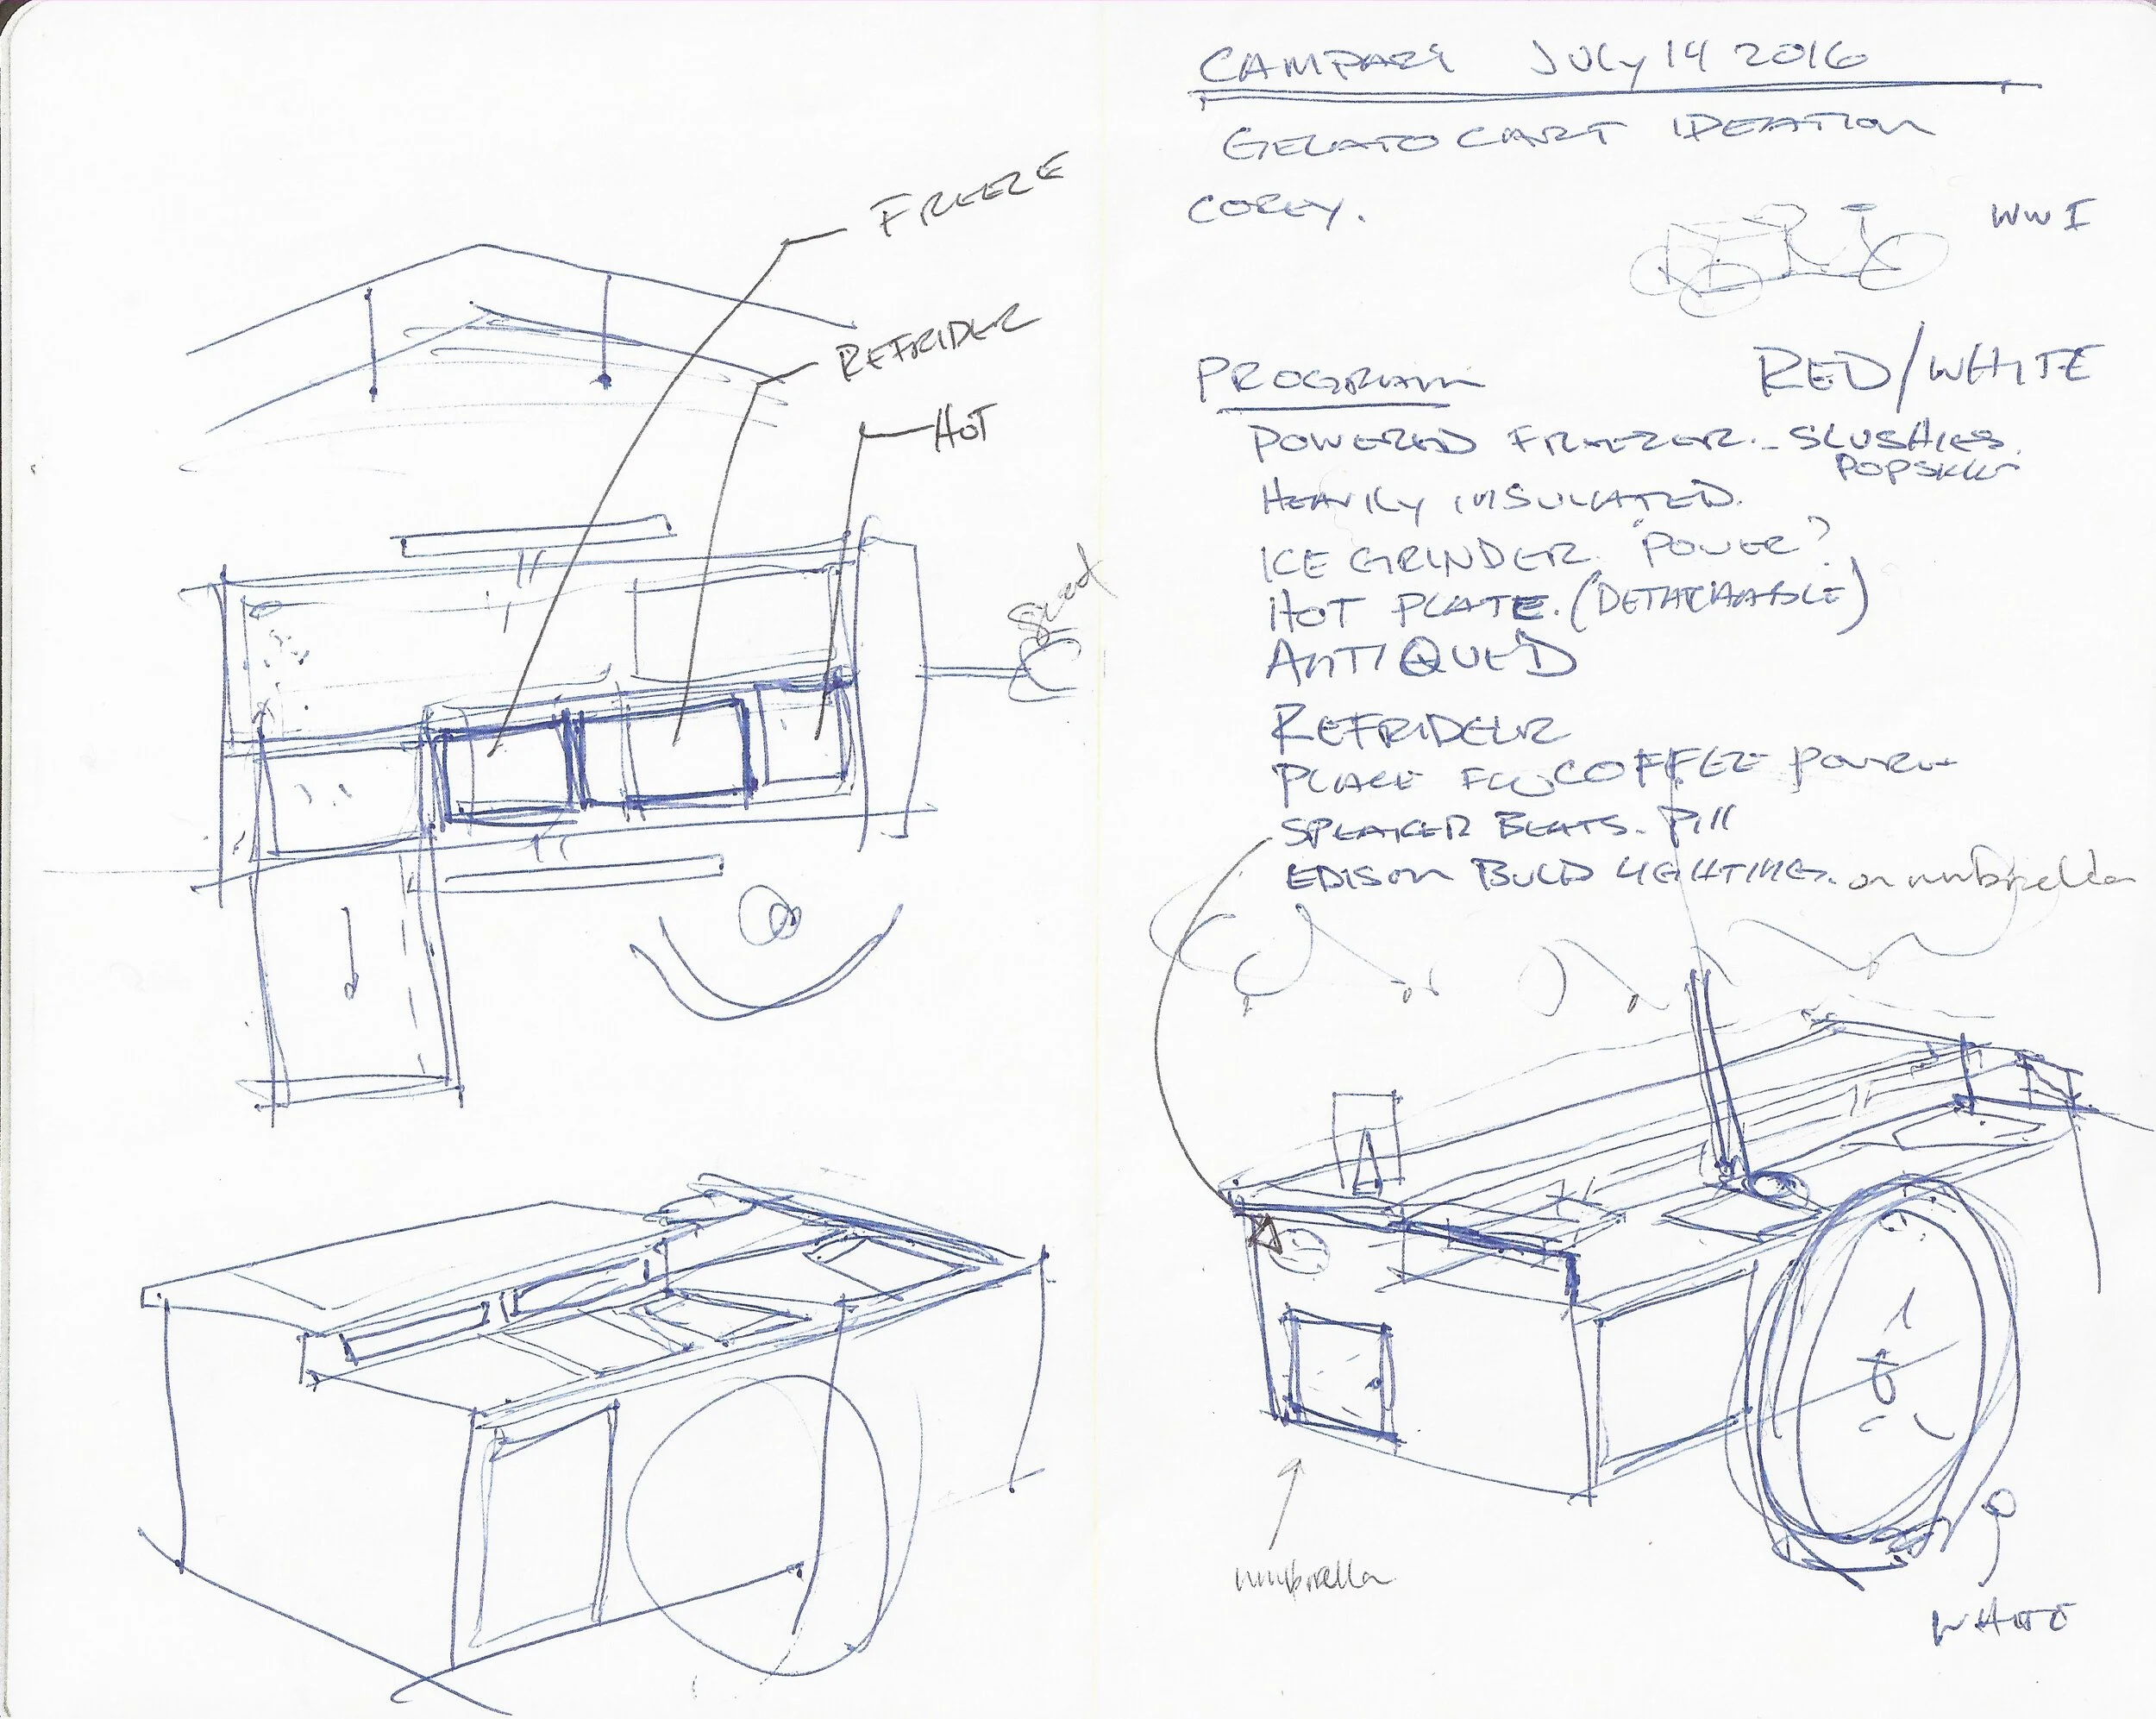 FREEZE
REFRIDER
HOT
CAMPARI JULY 14 2016
GELATO CART IDEATION
COREY.
WWI
RED/WHITE
PROGRAM
POWERED FREEZER. - SLUSHIES.
HEAVILY INSULATED.
ICE GRINDER. POWER?
HOT PLATE. (DETACHABLE)
ANTIQUED
PLACE COFFEE
SPEAKER BEATS. Pill
EDISON BULB LIGHTING. on umbrella
umbrella
WHITE